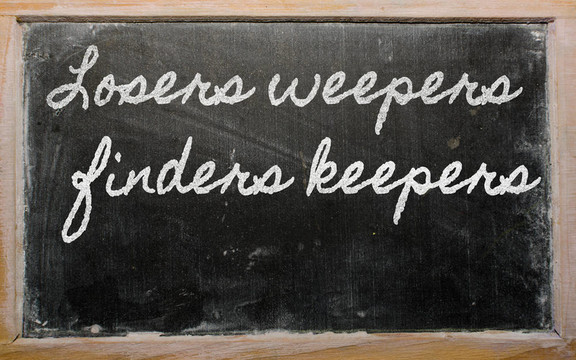 Losers weepers
finders keepers